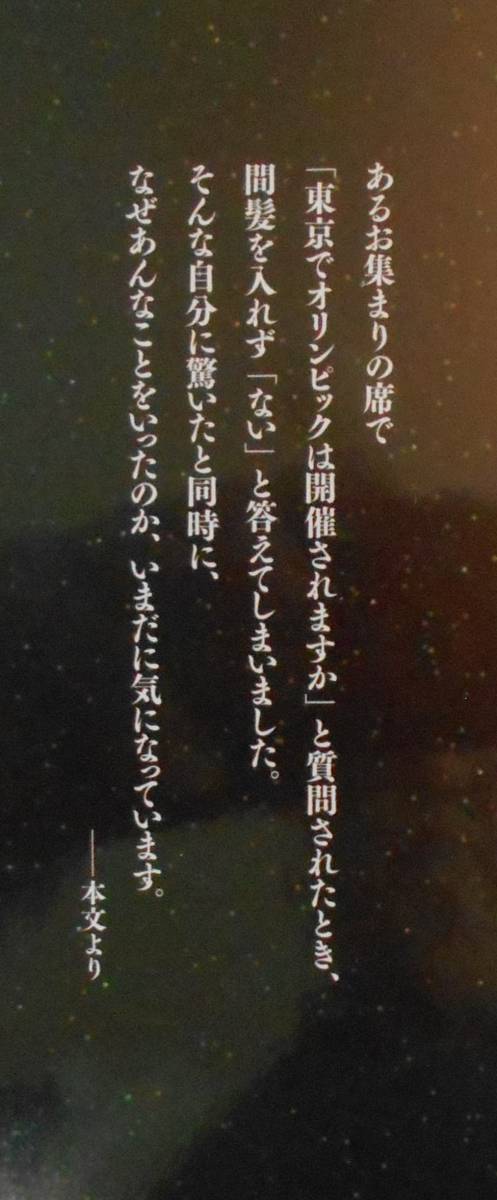 あるお集まりの席で
「東京でオリンピックは開催されますか」と質問されたとき、
間髪を入れず「ない」と答えてしまいました。
そんな自分に驚いたと同時に、
なぜあんなことをいったのか、いまだに気になっています。
──本文より